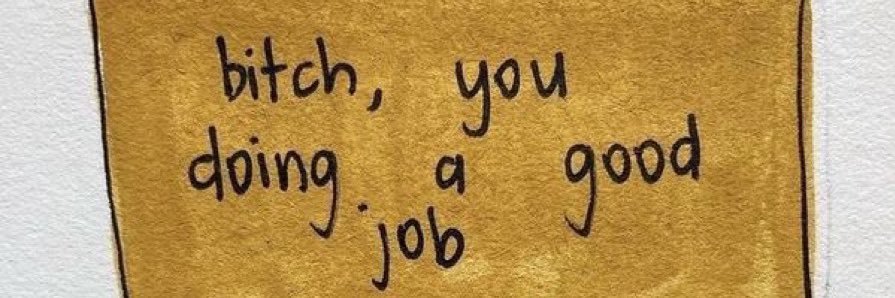 bitch, you
doing a good
job